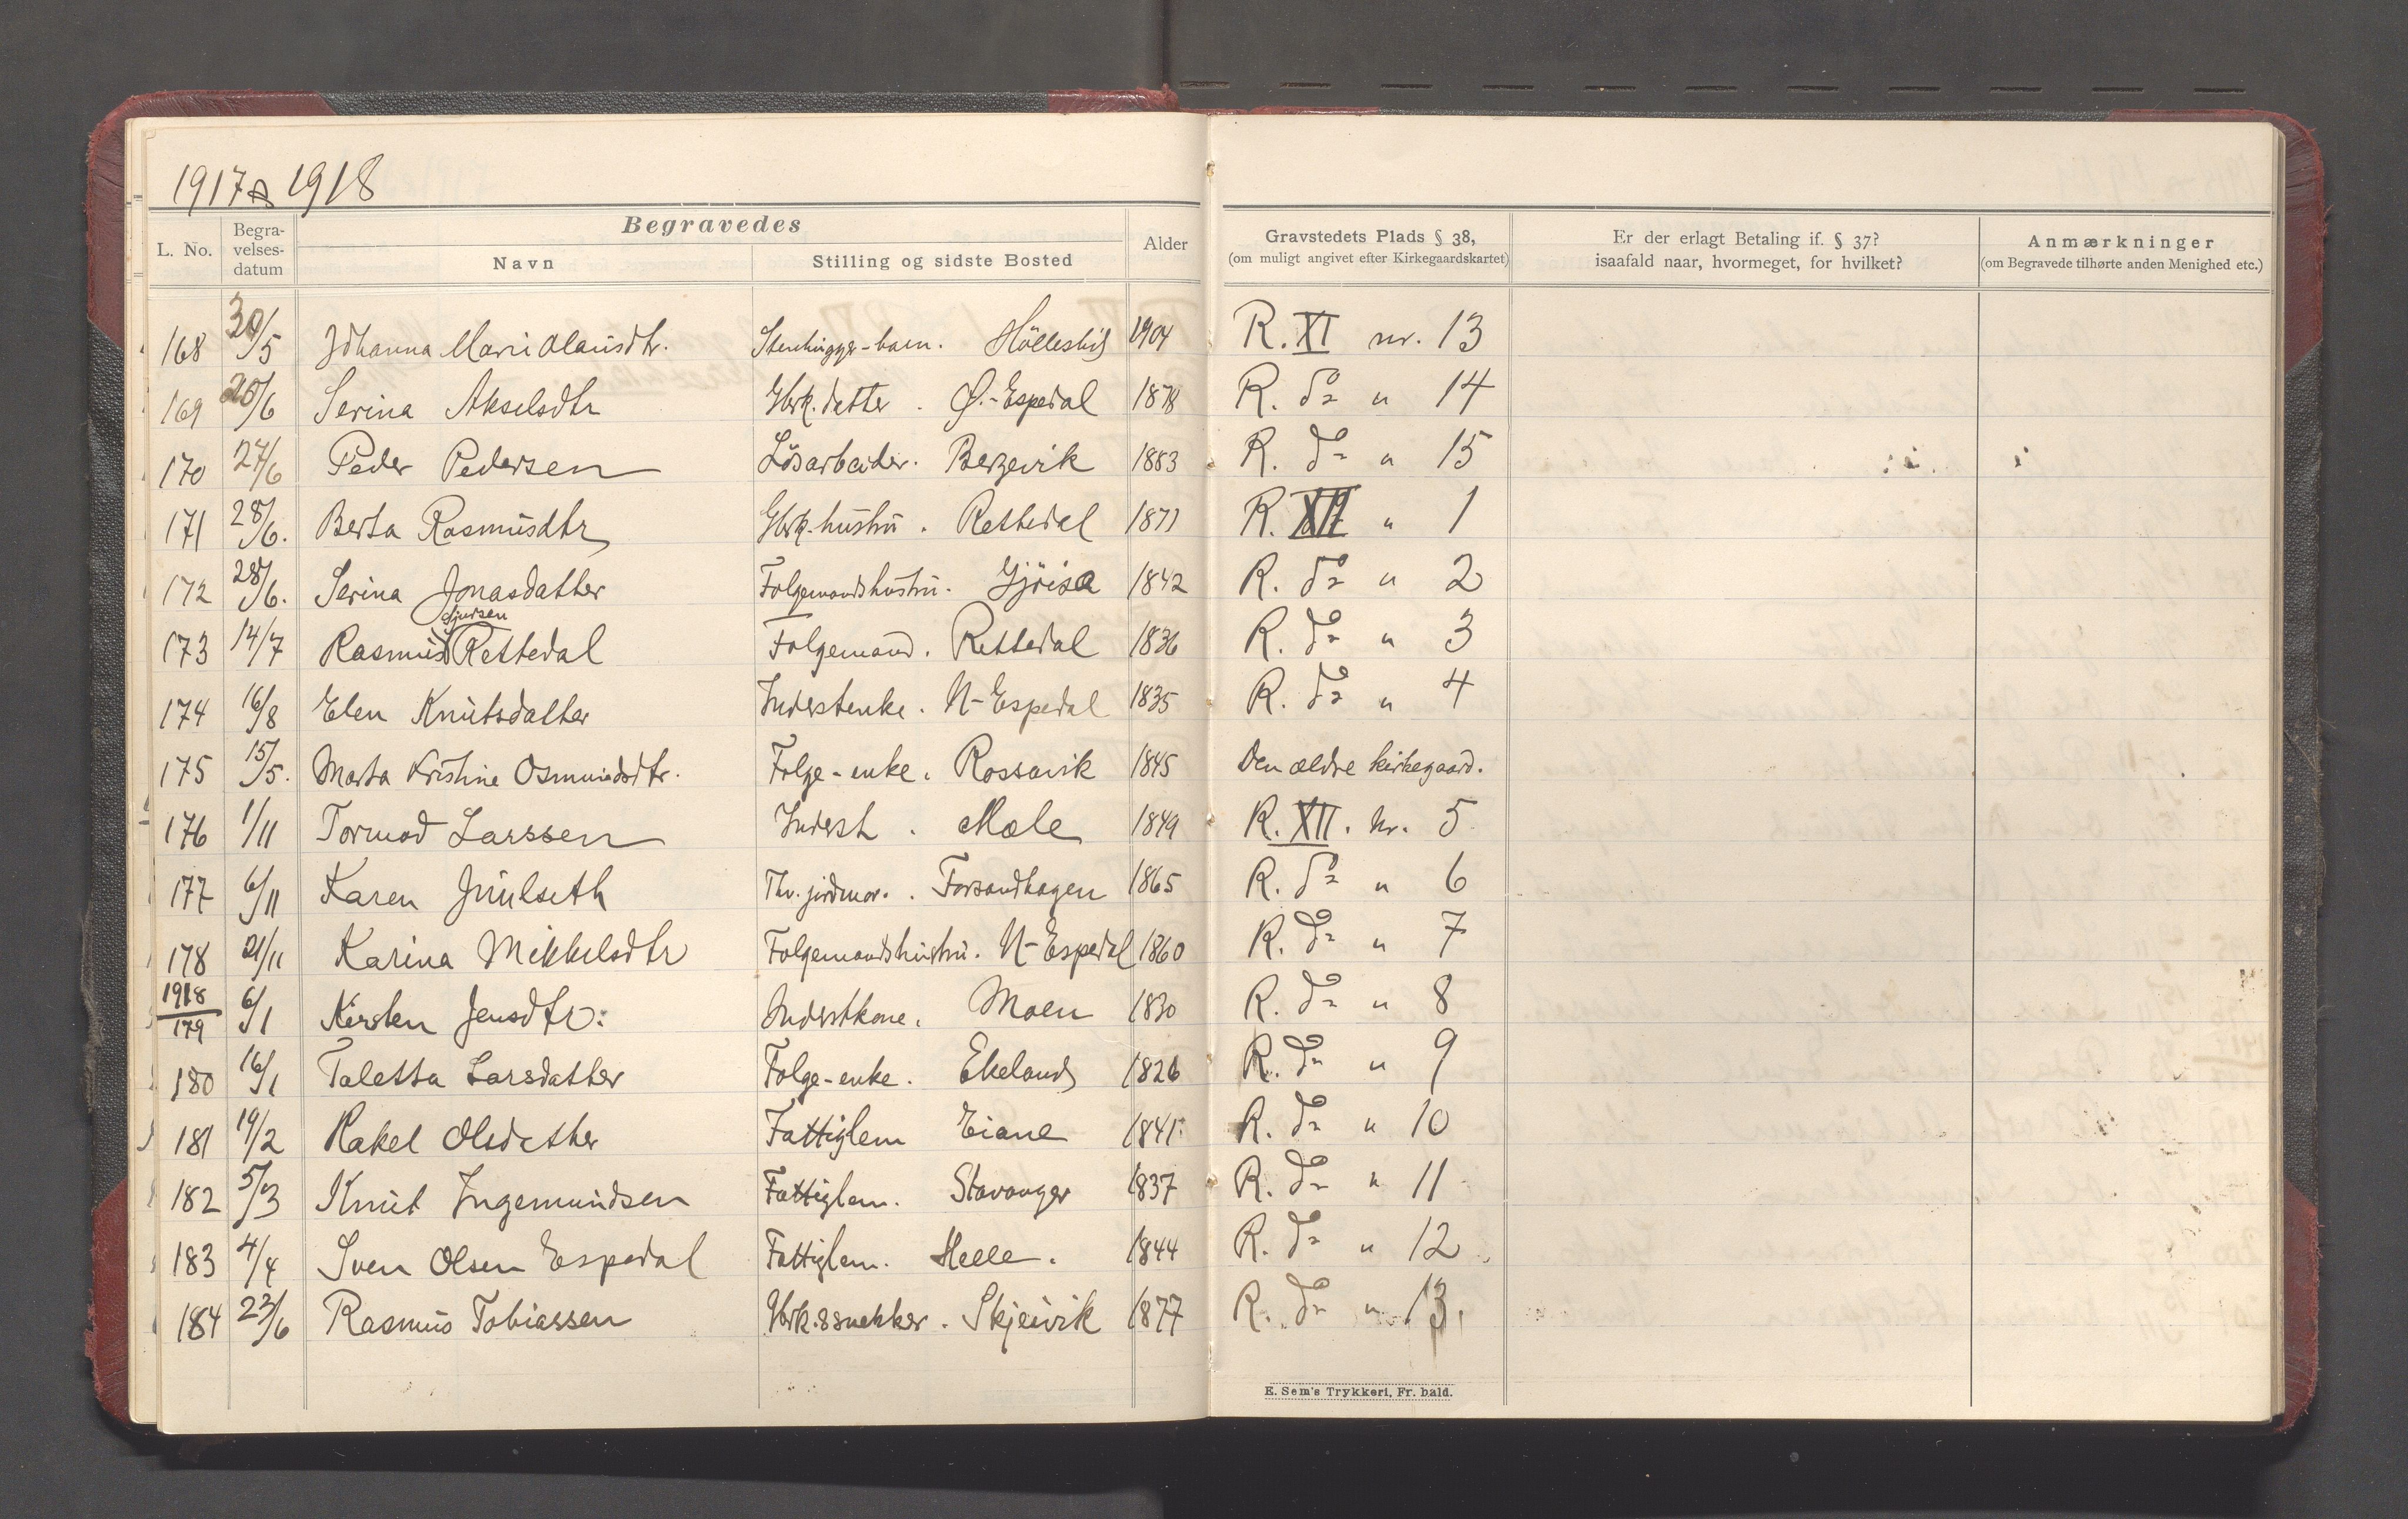 1917 & 1918
L. No. Begra-velses-datum Begravedes Alder Gravstedets Plads § 38, (om muligt angivet efter Kirkegaardskartet) Er der erlagt Betaling if. § 37? isaafald naar, hvormeget, for hvilket? Anmærkninger (om Begravede tilhørte anden Menighed etc.)
Navn Stilling og sidste Bosted
168 30/5 Johanna Marie Olausdtr. Stenhugger-barn. Hölleslid 1904 R. XI nr. 13
169 20/6 Serina Akselsdtr Gbrk. datter. Ø.-Espedal 1878 R. do " 14
170 27/6 Peder Pedersen Lösarbeider. Bergevik 1883 R. do " 15
171 28/6. Berta Rasmusdtr Gbrk. hustru. Rettedal 1871 R. XII " 1
172 28/6. Serina Jonasdatter Folgemandshustru. Gjöisa 1842 R. do " 2
173 14/7 Rasmus Sjursen Rettedal Folgemand. Rettedal 1836 R. do " 3
174 16/8 Elen Knutsdatter Inderstenke. N-Espedal 1835 R. do " 4
175 15/5. Marta Kristine Osmundsdtr. Folge-enke. Rossavik 1845 Den ældre kirkegaard.
176 1/11 Tormod Larssen Inderst. Mæle 1849 R. XII. Nr. 5
177 6/11 Karen Juulseth Thv. jordmor. Forsandhagen 1865 R. do " 6
178 21/11 Karina Mikkelsdtr Folgemandshustru. N-Espedal 1860 R. do " 7
1918
179 6/1 Kirsten Jensdtr. Inderstkone. Moen 1830 R. do " 8
180 16/1 Taletta Larsdatter Folge-enke. Ekeland 1826 R. do " 9
181 19/2 Rakel Olsdatter Fattiglem Eiane 1841 R. do " 10
182 5/3 Knut Ingemundsen Fattiglem. Stavanger 1837 R. do " 11
183 4/4 Sven Olsen Espedal Fattiglem. Helle. 1844 R. do " 12
184 23/6 Rasmus Tobiassen Gbrk. & snekker. Skjeivik 1877 R. do " 13.
E. Sem's Trykkeri, Fr. hald.